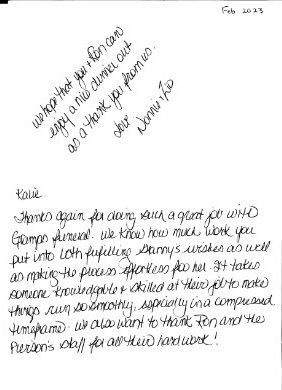 Feb 2023
we hope that you & Ron can
enjoy a nice dinner out
as a thank you from us.
Love
Katie.
Thanks again for doing such a great job with
Gramps funeral. We know how much work you
put into both fulfilling Granny's wishes as well
as making the process effortless for her. It takes
someone knowledgable & skilled at their job to make
things run so smoothly, especially in a compressed
timeframe. We also want to thank Ron and the
Pierson's staff for all their hard work!